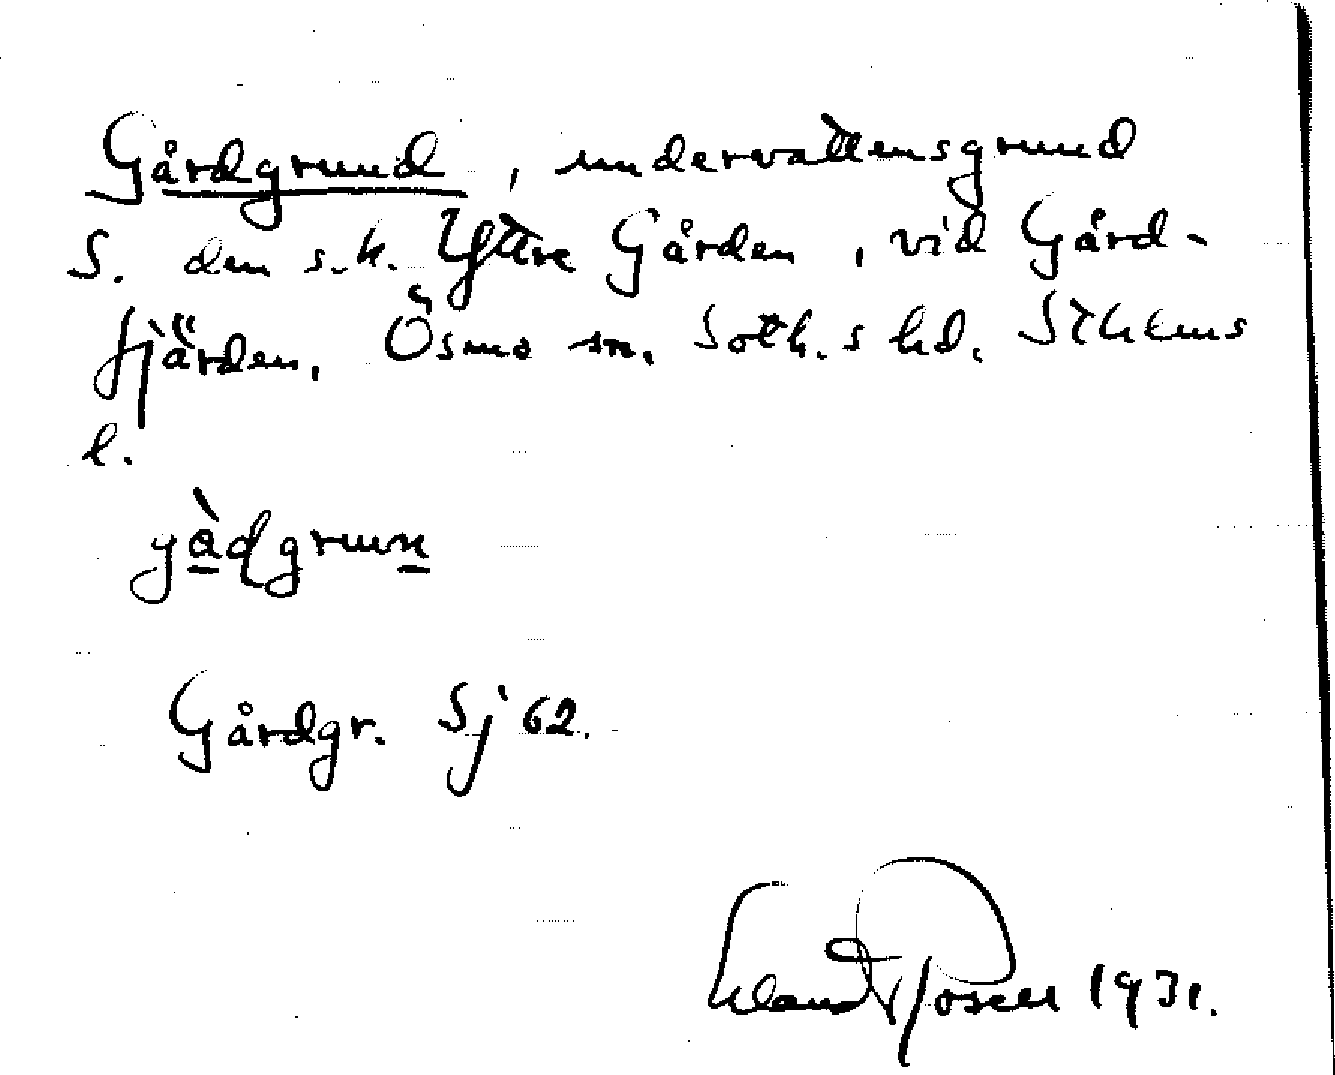 Gårdgrund, undervattensgrund
S. den s.k. Yttre Gården, vid Gård-
fjärden, Ösmo sn. Soth.s hd. Sthlms
l.
gàdgrun
Gårdgr. Sj 62.
1931.